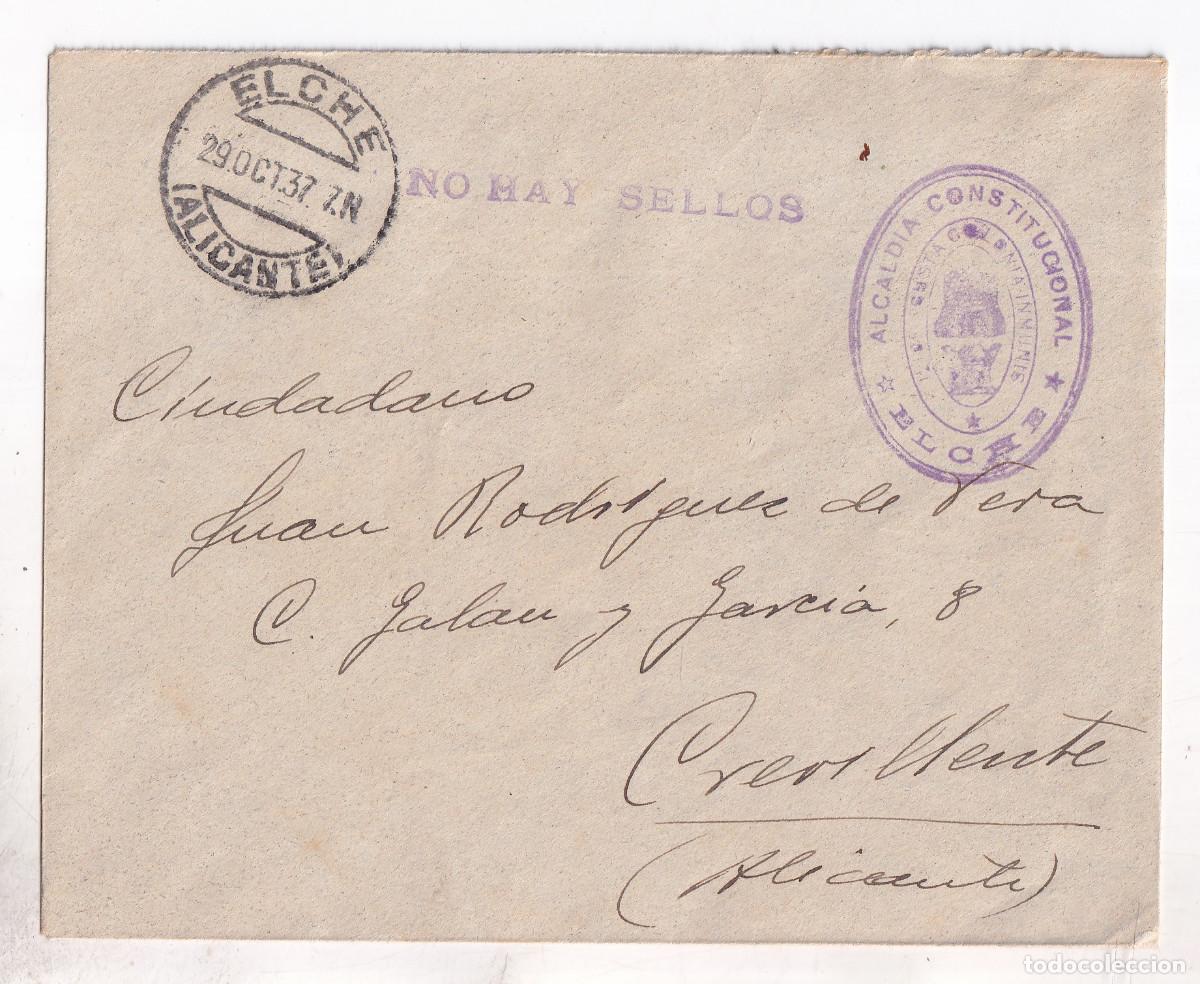 ELCHE
29.OCT.37 7.N
(ALICANTE)
NO HAY SELLOS
ALCALDIA CONSTITUCIONAL
INMUNIS
ELCHE
Ciudadano
Juan Rodriguez de Vera
C. Galan y Garcia, 8
Crevillente
(Alicante)
todocoleccion